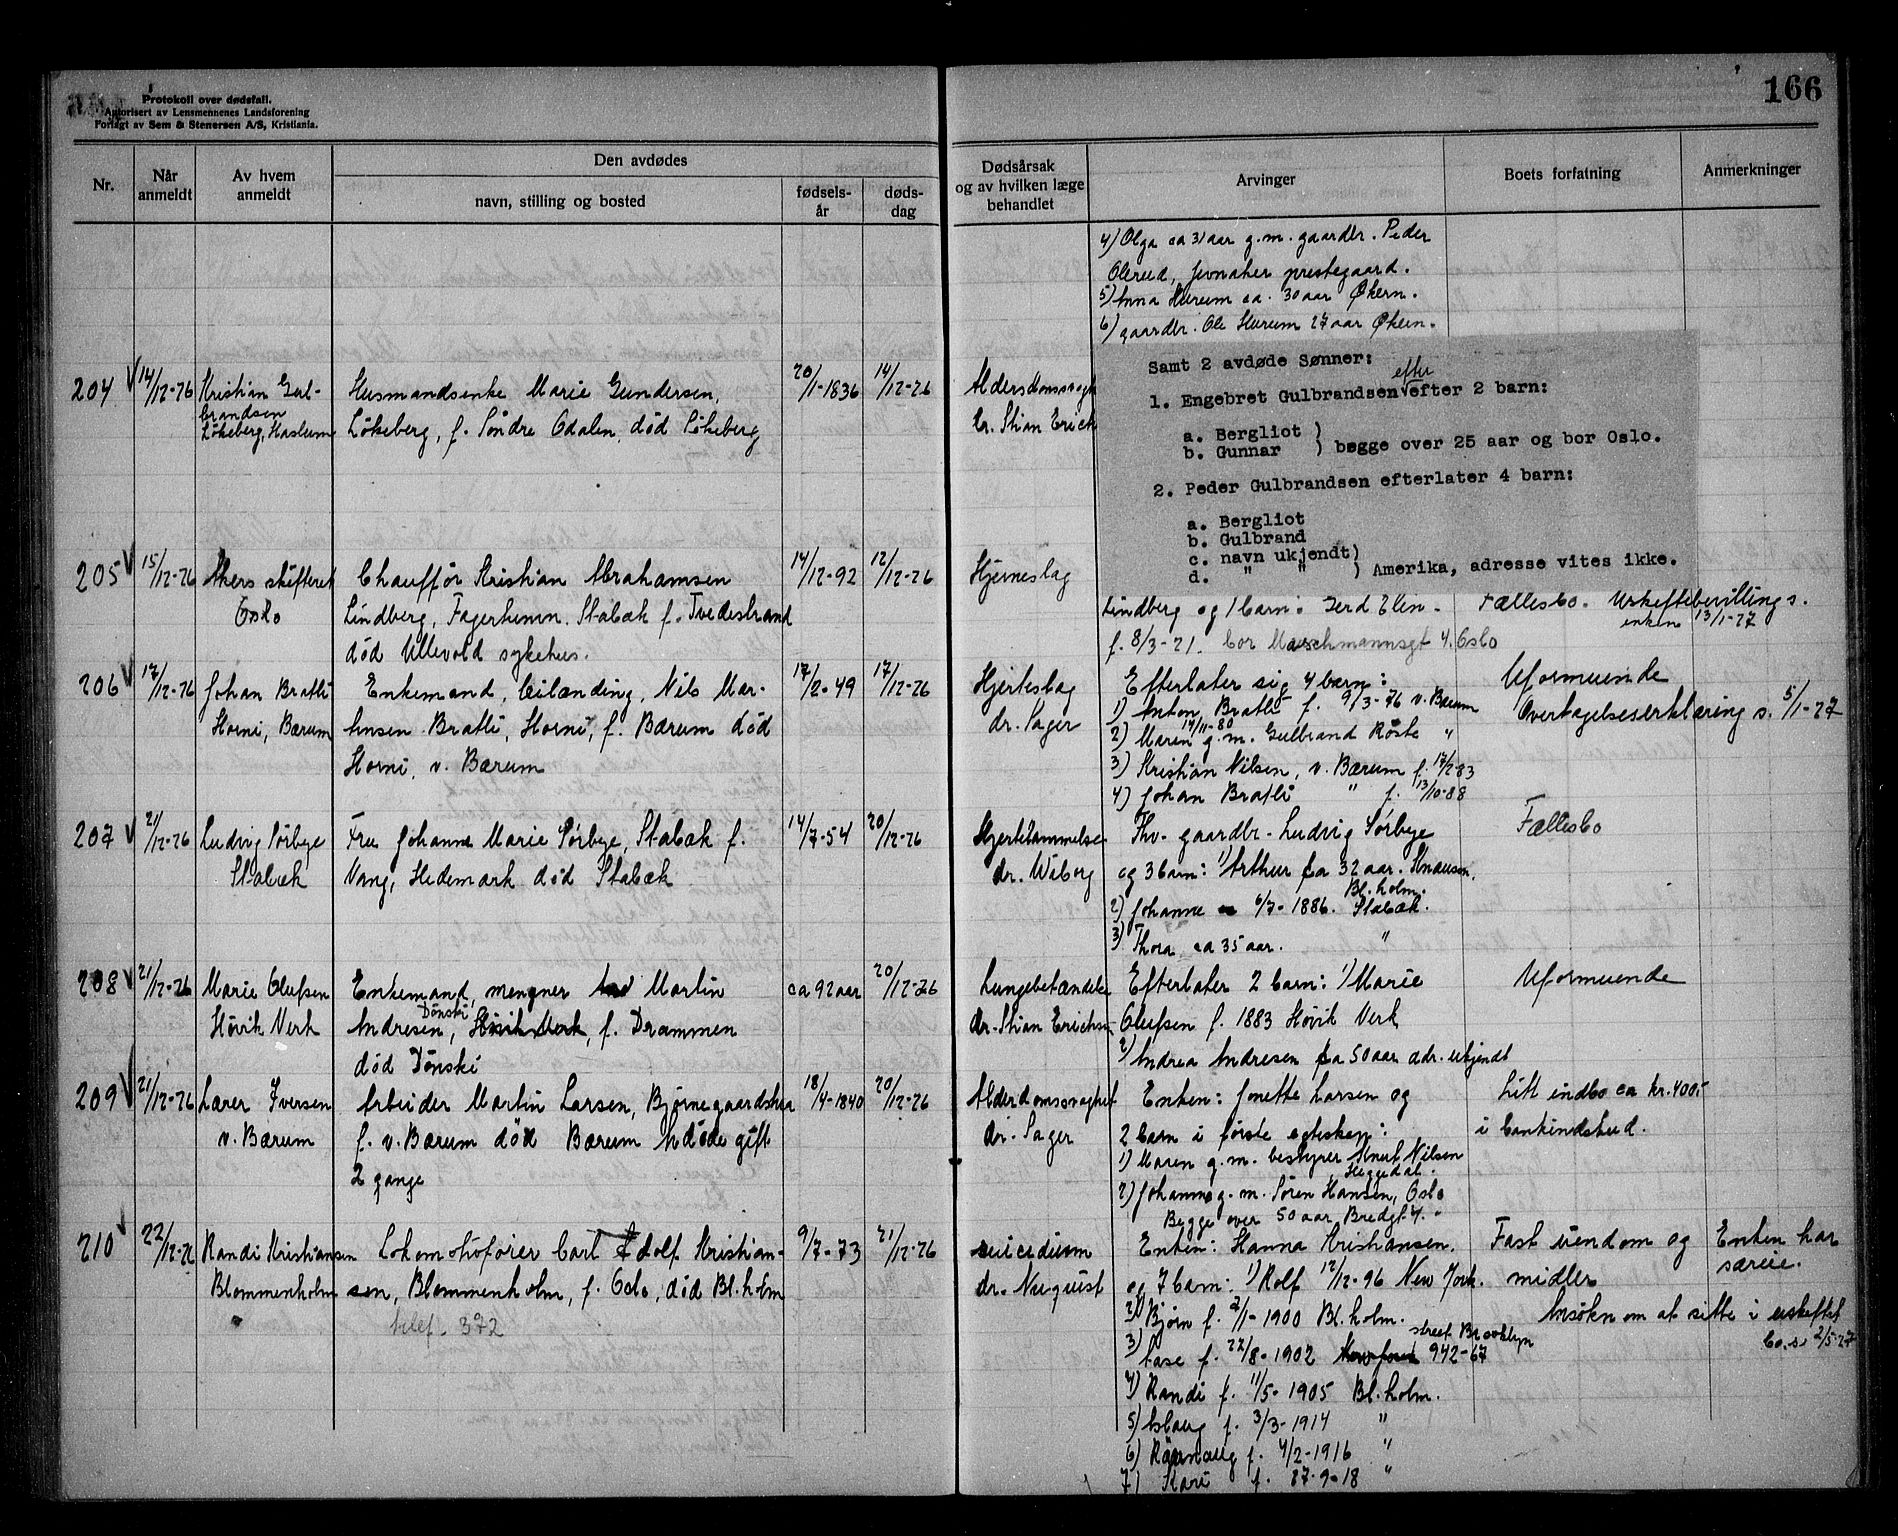 Protokoll over dødsfall.
Autorisert av Lensmennenes Landsforening
Forlagt av Sem & Stenersen A/S, Kristiania.
166
Nr.
Når anmeldt
Av hvem anmeldt
Den avdødes
navn, stilling og bosted
fødsels-år
døds-dag
Dødsårsak og av hvilken læge behandlet
Arvinger
Boets forfatning
Anmerkninger
4) Olga ca 31 aar g.m. gaardbr. Peder
Olerud, Jevnaker prestegaard.
5) Anna Hurum ca. 30 aar Økern.
6) gaardbr. Ole Hurum 27 aar Økern.
204 14/12-26
Kristian Gul-
brandsen
Løkeberg, Haslum
Husmandsenke Marie Gundersen,
Løkeberg, f. Söndre Odalen, død Løkeberg
20/1-1836
14/12-26
Aldersdomssvagh
Dr. Stian Erich
Samt 2 avdøde Sønner:
efter
1. Engebret Gulbrandsen efter 2 barn:
a. Bergliot )
b. Gunnar ) begge over 25 aar og bor Oslo.
2. Peder Gulbrandsen efterlater 4 barn:
a. Bergliot
b. Gulbrand
c. navn ukjendt)
d. " " ) Amerika, adresse vites ikke.
205 15/12-26
Akers skifteret
Oslo
Chauffør Kristian Abrahamsen
Lindberg, Fagerheimn. Stabæk f. Tvedestrand
død Ullevold sykehus.
14/12-92
12/12-26
Hjerneslag
Lindberg og 1 barn: Gerd Elin -
f. 8/3-21. bor Marschmannsgt 4. Oslo
Fællesbo. Uskiftebevilling s.
enken 13/1-27
206 17/12-26
Johan Bratli
Horni, Bærum
Enkemand, leilænding, Nils Mar-
tinsen Bratli, Horni, f. Bærum død
Horni, v. Bærum
17/2-49
17/12-26
Hjerteslag
dr. Sager
Efterlater sig 4 barn:
1) Anton Bratli f. 9/3-76 v. Bærum
14/11-80
2) Maren g.m. Gulbrand Röste "
3) Kristian Nilsen, v. Bærum f. 17/2-83
4) Johan Bratli " f. 13/10-88
Uformuende
Overtagelseserklæring s. 5/1-27
207 21/12-26
Ludvig Sörbye
Stabæk
Fru Johanne Marie Sørbye, Stabæk f.
Vang, Hedemark død Stabæk
14/7-54
20/12-26
Hjertelammelse
dr. Wiborg
Fhv. gaardbr. Ludvig Sørbye
og 3 barn: 1) Arthur ca 32 aar.
Bl.holm.
2) Johanne 6/7-1886. Stabæk.
3) Thora ca 35 aar. "
Fællesbo
208 21/12-26
Marie Olufsen
Høvik Verk
Enkemand, Martin
Dønski
Andresen, Høvik Verk, f. Drammen
død Dønski
ca 92 aar
20/12-26
Lungebetændelse
dr. Stian Erichsen
Efterlater 2 barn: 1) Marie
Olufsen f. 1883 Høvik Verk
2) Andrea Andresen ca 50 aar adr. ukjendt
Uformuende
209 21/12-26
Larer Iversen
v. Bærum
Arbeider Martin Larsen, Bjørnegaardshra
f. v. Bærum død Bærum Avdøde gift
2 gange
18/4-1840
20/12-26
Alderdomssvaghet
dr. Sager
Enken: Jonette Larsen og
2 barn i første egteskap:
1) Maren g.m. bestyrer Knut Nilsen
Heggedal.
2) Johanne g.m. Søren Hansen, Oslo
Begge over 50 aar, Bredgt. 4.
Litt indbo ca kr. 400,-
i bankindskud.
210 22/12-26
Randi Kristiansen
Blommenholm
Lokomotivfører Carl Adolf Kristian-
sen, Blommenholm, f. Oslo, død Bl.holm
telef. 372
9/7-73
21/12-26
suicidium
dr. Nyquist
Enken: Hanna Kristiansen.
og 7 barn: 1) Rolf 12/12-96 New York.
2) Bjørn f. 2/1-1900 Bl.holm.
street Brooklyn
3) Aase f. 22/8-1902 942-67
4) Randi f. 11/5-1905 Bl.holm.
5) Aslaug f. 3/3-1914 "
6) Rannaug f. 4/2-1916 "
7) Kari f. 27-9-18 "
Fast eiendom og
midler
Ansøkn om at sitte i uskiftet
bo s. 2/5-27
Enken har
særeie.